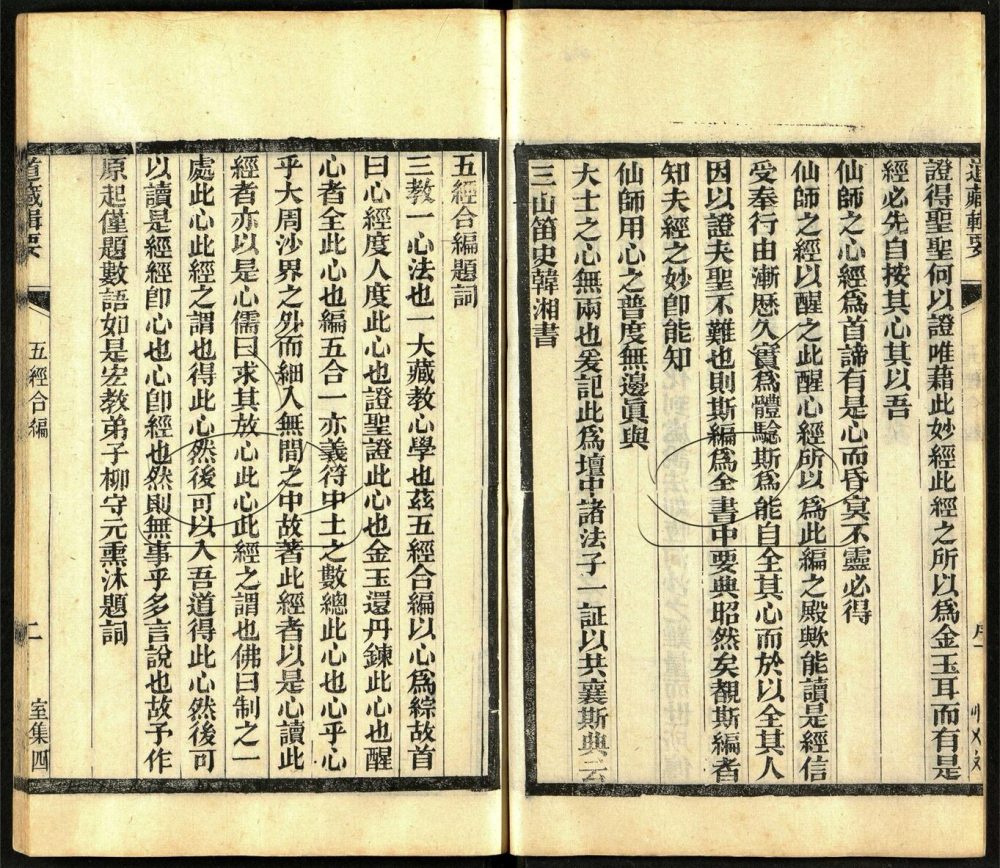 道藏輯要
證得聖聖何以證唯藉此妙經此經之所以爲金玉耳而有是
經必先自按其心其以吾
仙師之心經爲首諦有是心而昏冥不靈必得
仙師之經以醒之此醒心經所以爲此編之殿歟能讀是經信
受奉行由漸歷久實爲體騐斯爲能自全其心而於以全其人
因以證夫聖不難也則斯編爲全書中要典昭然矣覩斯編者
知夫經之妙卽能知
仙師用心之普度無邊眞與
大士之心無兩也爰記此爲壇中諸法子一証以共襄斯典云
三山笛史韓湘書
五經合編題詞
三教一心法也一大藏教心學也茲五經合編以心爲綜故首
曰心經度人度此心也證聖證此心也金玉還丹鍊此心也醒
心者全此心也編五合一亦義符中土之數總此心也心乎心
乎大周沙界之外而細入無間之中故著此經者以是心讀此
經者亦以是心儒曰求其放心此心此經之謂也佛曰制之一
處此心此經之謂也得此心然後可以入吾道得此心然後可
以讀是經經卽心也心卽經也然則無事乎多言說也故予作
原起僅題數語如是宏教弟子柳守元熏沐題詞
道藏輯要
五經合編
二
室集四